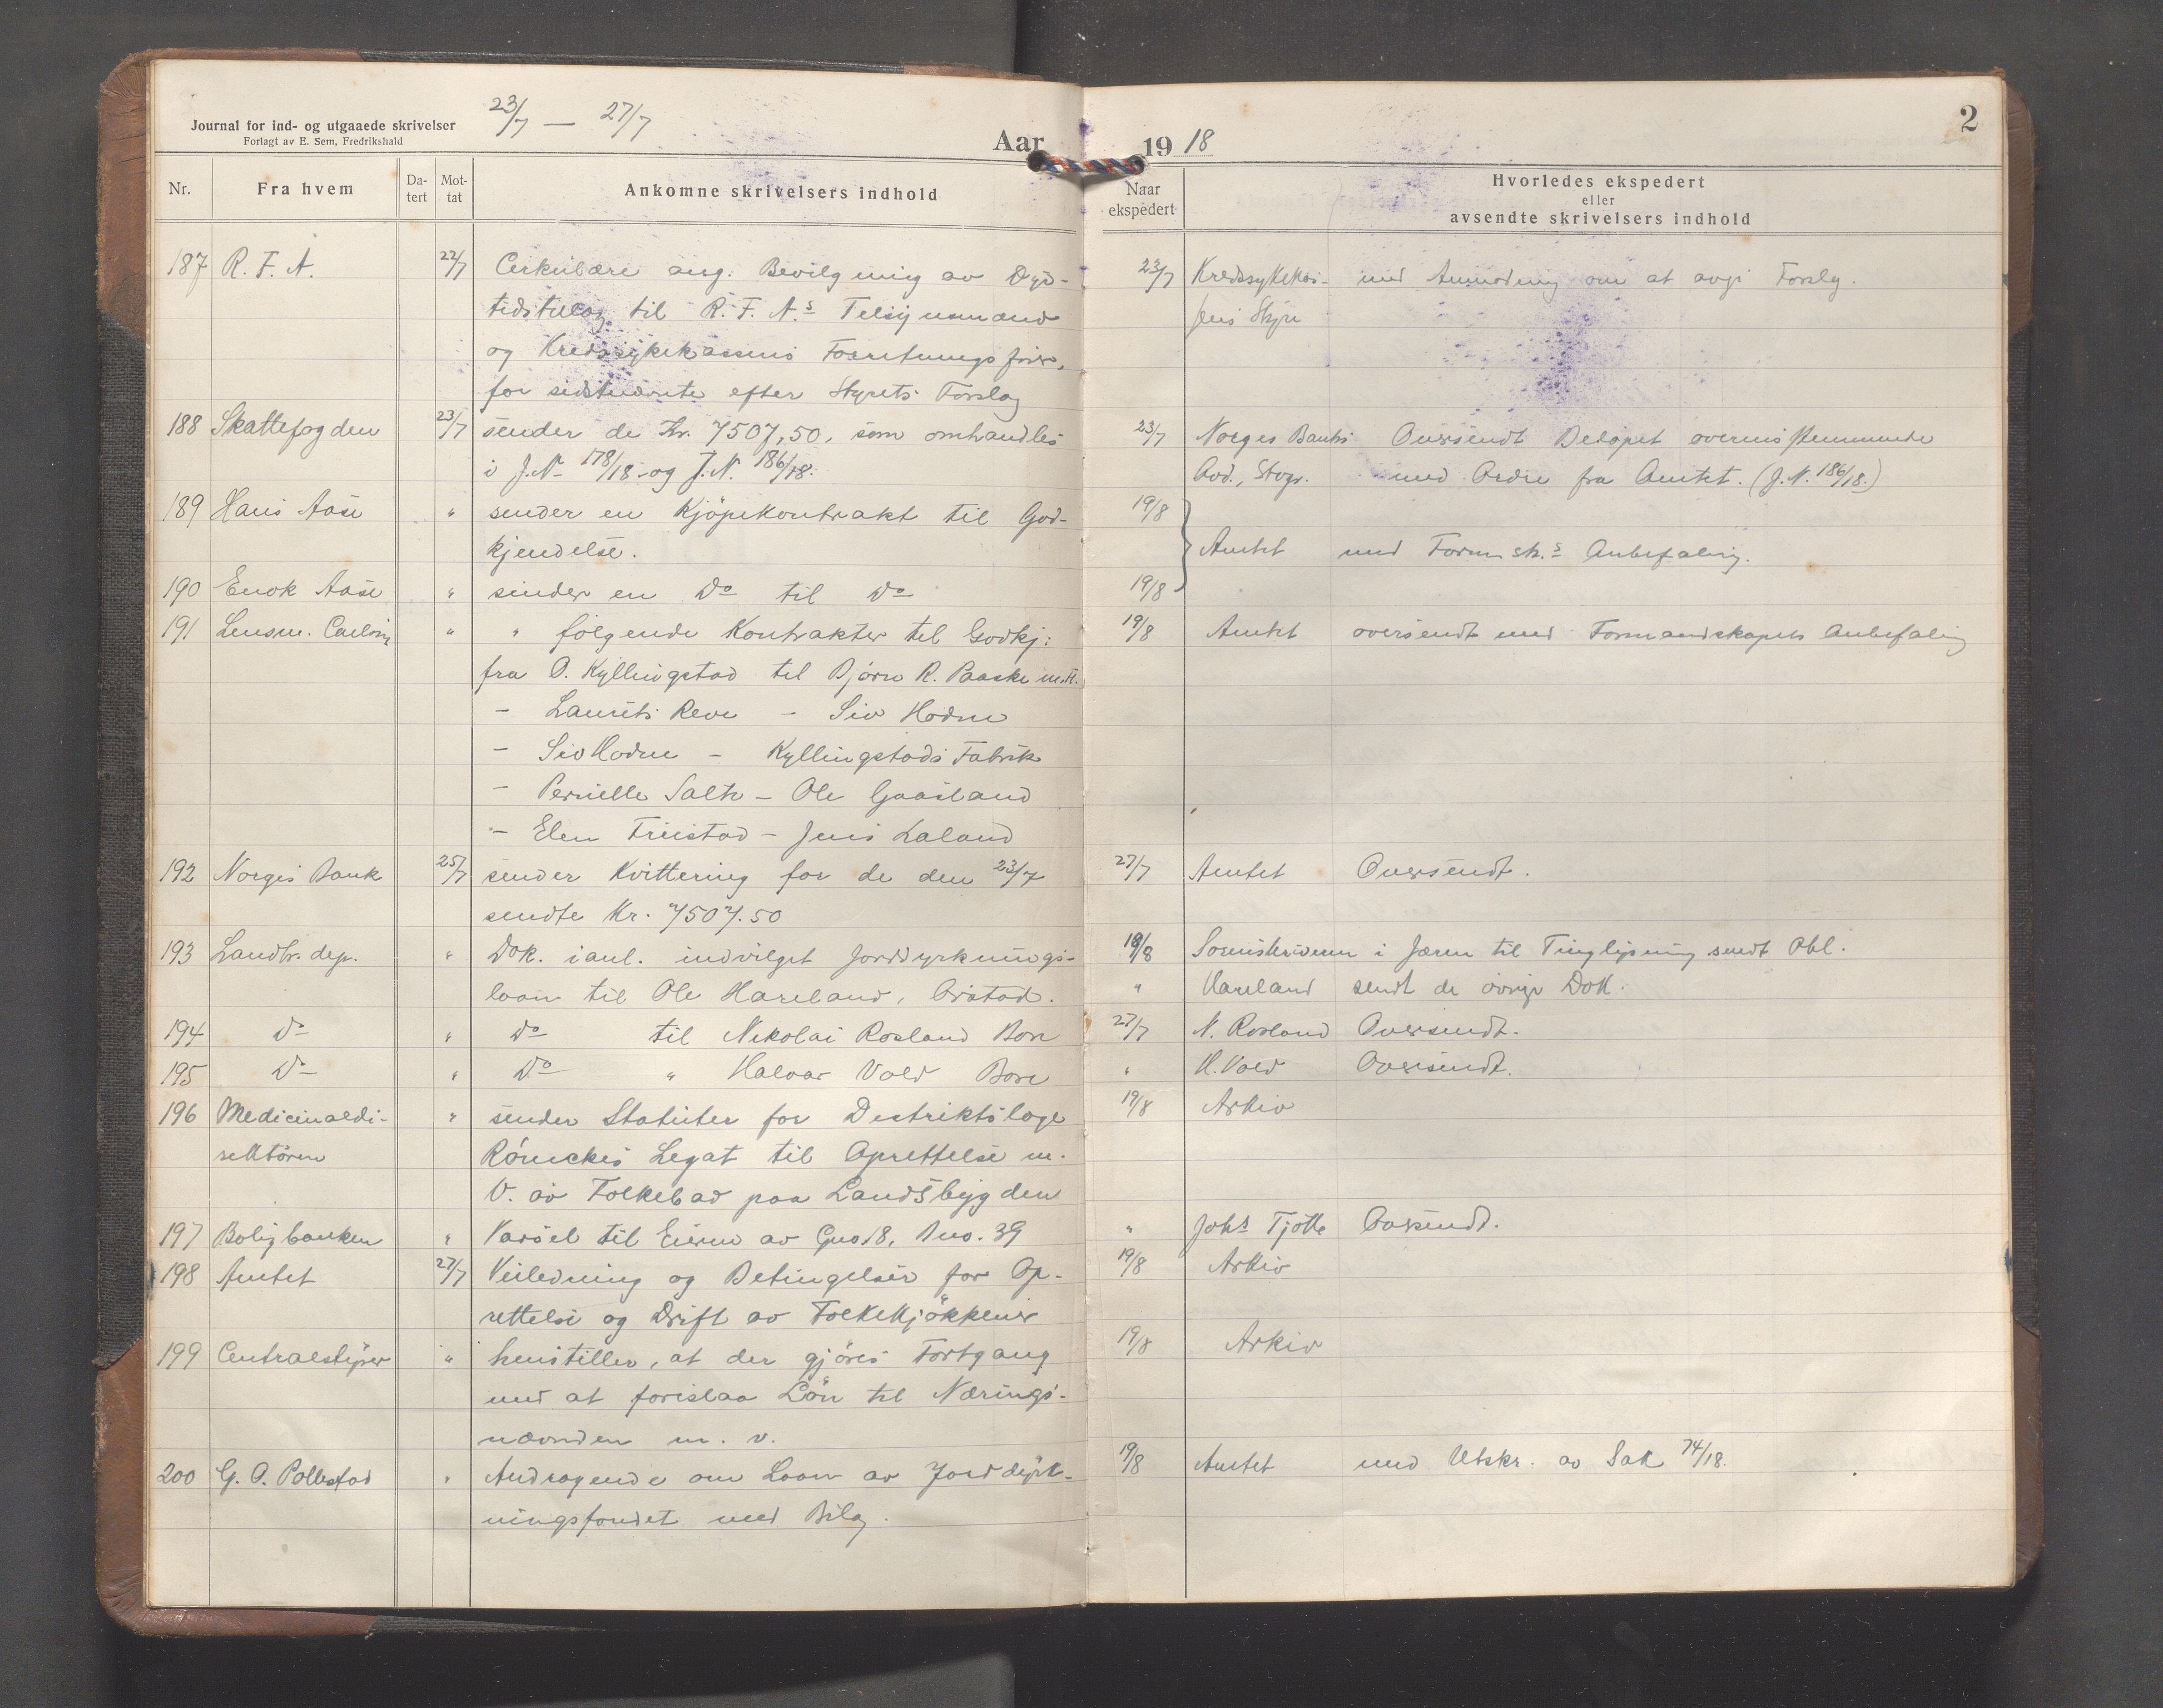 23/7 — 27/7
Journal for ind- og utgaaede skrivelser
Forlagt av E. Sem, Fredrikshald
Aar 1918
2
Nr. Fra hvem Da-tert Mot-tat Ankomne skrivelsers indhold Naar ekspedert Hvorledes ekspedert eller avsendte skrivelsers indhold
187 R. F. A. 22/7 Cirkulære ang. Bevilgning av Dyr- 23/7 Kredssykekas- med Anmodning om at avgi Forslag.
tidstillæg til R. F. A.s Tilsynsmænd Jens
og Kredssykekassens Forretningsfører,
for sidstnævnte efter Styrets Forslag
188 Skattefogden 23/7 sender de Kr. 7507,50, som omhandles 23/7 Norges Banks Oversendt Beløpet overensstemmende
i J.N. 178/18 og J.N. 186/18. Avd., Stvgr. med Ordre fra Amtet. (J.N. 186/18.)
189 Hans Aase " sender en Kjöpekontrakt til God- 19/8
kjendelse. Amtet med Formsk.s Anbefaling.
190 Enok Aase " sender en Do til Do 19/8
191 Lensm. " " følgende Kontrakter til Godkj: 19/8 Amtet oversendt med Formandskapets Anbefaling
fra O. Kyllingstad til Bjørn R. Paaske m.fl.
— Laurits Reve — Siv Hodne
— Siv Hodne — Kyllingstads Fabrik
— Pernille Salte — Ole Gaasland
— Elen Friestad — Jens Laland
192 Norges Bank 25/7 sender Kvittering for de den 23/7 27/7 Amtet Oversendt.
sendte Kr. 7507.50
193 Landbr. dep. " Dok. i anl. indvilget Jorddyrknings- 19/8 Sorenskriveren i Jæren til Tinglysning sendt Obl.
laan til Ole Hareland, Orstad. " Hareland sendt de øvrige Dok.
194 Do " Do til Nikolai Rosland Bore 27/7 N. Rosland Oversendt.
195 Do " Do " Halvar Vold Bore " H. Vold Oversendt.
196 Medicinaldi- " sender Statuter for Distriktslæge 19/8 Arkiv
rektören Legat til Oprettelse m.
V. av Folkebad paa Landsbygden
197 Boligbanken " Varsel til Eieren av Gno. 18, Bno. 39 " Johs Tjøtta Oversendt.
198 Amtet 27/7 Veiledning og Betingelser for Op- 19/8 Arkiv
rettelse og Drift av Folkekjøkkener
199 Centralstyret " henstiller, at der gjöres Fortgang 19/8 Arkiv
med at foreslaa Lön til Nærings-
nævnden m. v.
200 G. O. Pollestad " Andragende om Laan av Jorddyrk- 19/8 Amtet med Utskr. av Sak 74/18.
ningsfondet med Bilag.